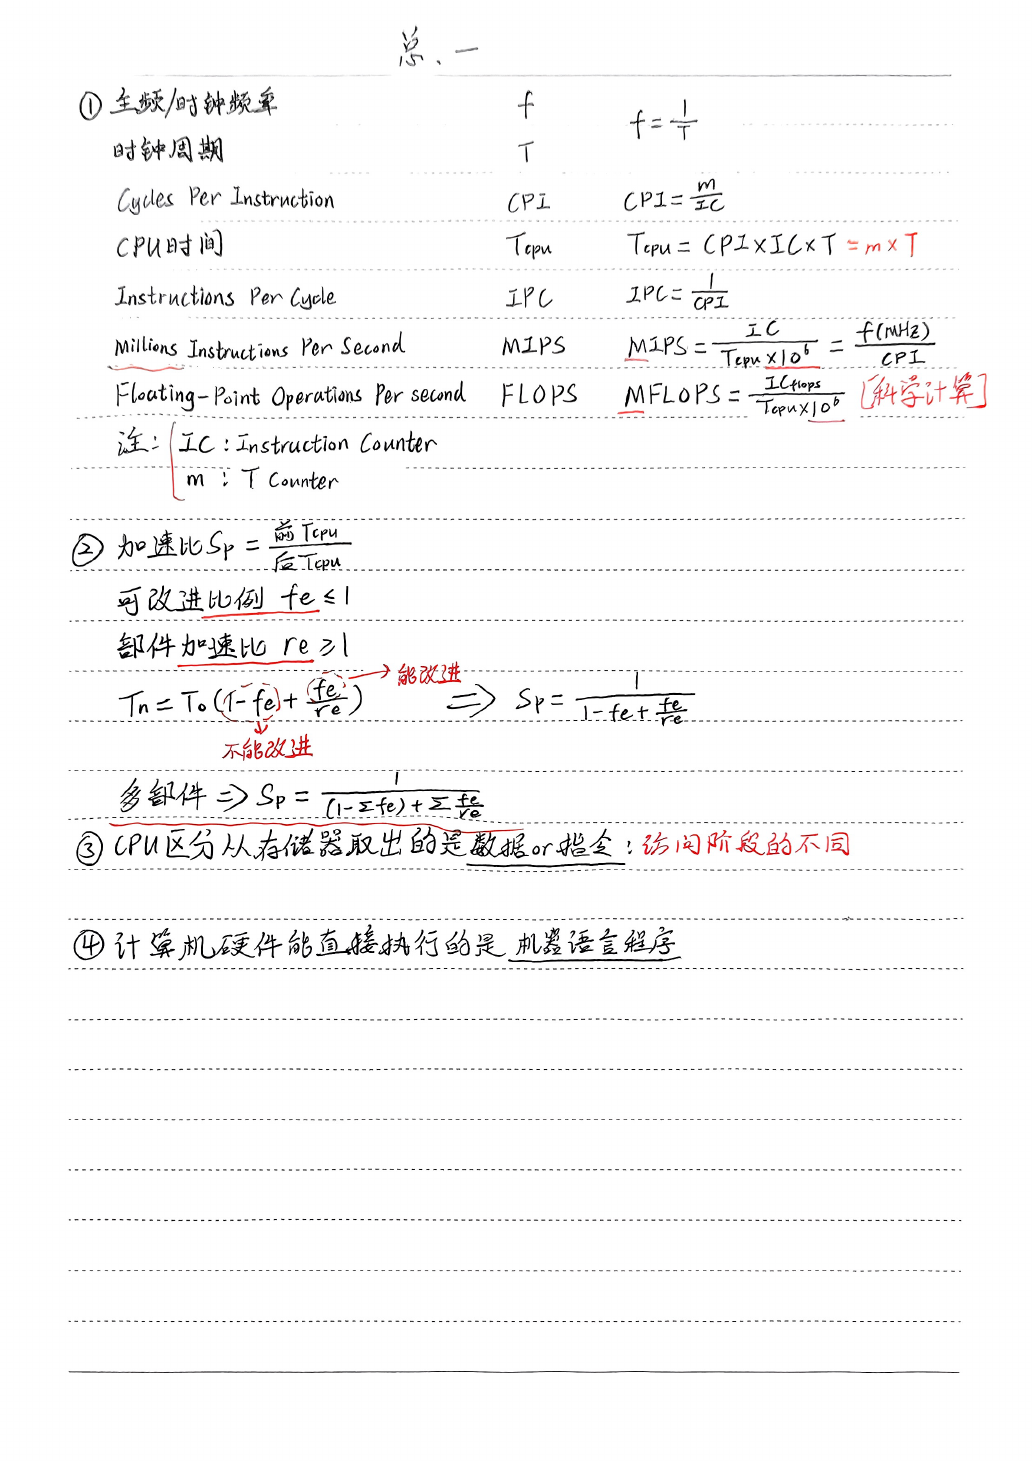 总、一
① 主频/时钟频率 f f = 1/T
时钟周期 T
Cycles Per Instruction CPI CPI = m/IC
CPU时间 Tcpu Tcpu = CPI×IC×T = m×T
Instructions Per Cycle IPC IPC = 1/CPI
Millions Instructions Per Second MIPS MIPS = IC/(Tcpu×10⁶) = f(MHz)/CPI
Floating-Point Operations Per second FLOPS MFLOPS = ICflops/(Tcpu×10⁶) [科学计算]
注: IC : Instruction Counter
m : T Counter
② 加速比Sp = 前Tcpu/后Tcpu
可改进比例 fe ≤ 1
部件加速比 re ≥ 1
Tn = T₀(1-fe + fe/re) → 能改进 ⇒ Sp = 1/(1-fe+fe/re)
不能改进
多部件 ⇒ Sp = 1/((1-Σfe)+Σfe/re)
③ CPU区分从存储器取出的是数据or指令: 访问阶段的不同
④ 计算机硬件能直接执行的是 机器语言程序